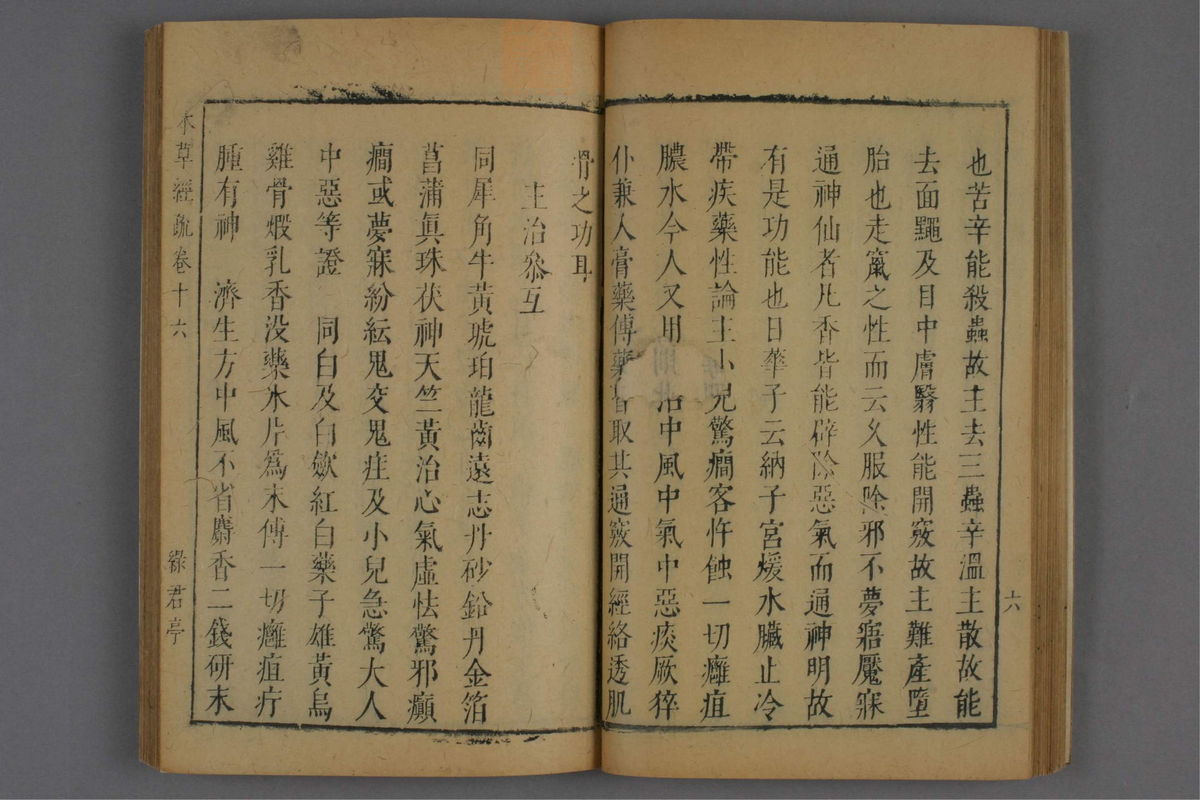 也苦辛能殺蟲故主去三蟲辛溫主散故能
去面䵴及目中膚翳性能開竅故主難產墮
胎也走竄之性而云久服除邪不夢寤魘寐
通神仙者凡香皆能辟除惡氣而通神明故
有是功能也日華子云納子宮煖水臟止冷
帶疾藥性論主小兒驚癇客忤蝕一切癰疽
膿水今人又用治中風中氣中惡痰厥猝
仆兼入膏藥傅藥皆取其通竅開經絡透肌
六
骨之功耳
主治叅互
同犀角牛黃琥珀龍齒遠志丹砂鉛丹金箔
菖蒲眞珠茯神天竺黃治心氣虛怯驚邪癲
癇或夢寐紛紜鬼交鬼疰及小兒急驚大人
中惡等證　同白及白歛紅白藥子雄黃烏
雞骨煅乳香没藥氷片爲末傅一切癰疽疔
腫有神　濟生方中風不省麝香二錢研末
本草經疏卷十六
綠君亭